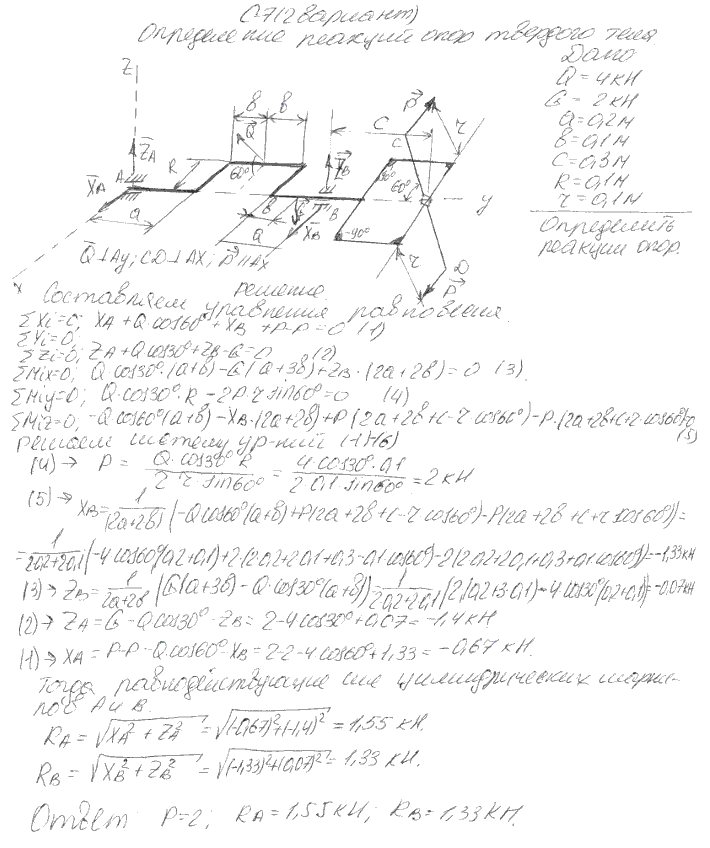 С7(2 вариант)
Определение реакций опор твердого тела
Дано
Q = 4 кН
G = 2 кН
a = 0,2 м
b = 0,1 м
C = 0,3 м
R = 0,1 м
r = 0,1 м
Определить
реакции опор.
Z
b b
Q
C
P
C
r
Z̄A
R
60°
Z̄B
X̄A A
90°
60°
y
a
B
G
B
X̄B
a
90°
r
D
P̄
x
Q̄⊥Ay; CD⊥AX; P̄∥AX
решение.
Составляем уравнения равновесия.
ΣXi=0; XA + Q·cos60° + XB + P-P = 0 (1)
ΣYi=0;
ΣZi=0; ZA+Qcos30+ZB-G=0 (2)
ΣMix=0; Qcos30°·(a+b)-G(a+3b)+ZB·(2a+2b)=0 (3)
ΣMiy=0; Q·cos30°·R - 2P·r sin60°=0 (4)
ΣMiz=0; -Qcos60°(a+b)-XB·(2a+2b)+P(2a+2b+c-r cos60°)-P·(2a+2b+c+r·cos60°)=0 (5)
решаем систему ур-ний (1÷6)
(4)→ P = Q·cos30°R / 2 r·sin60° = 4 cos30°·0,1 / 2·0,1·sin60° = 2 кН
(5)→ XB = 1/(2a+2b) (-Qcos60°(a+b)+P(2a+2b+c-r cos60°)-P(2a+2b+c+r cos60°))=
= 1/2·0,2+2·0,1 (-4cos60°(0,2+0,1)+2(2·0,2+2·0,1+0,3-0,1cos60°)-2(2·0,2+2·0,1+0,3+0,1cos60°))=-1,33кН
(3)→ ZB = 1/2a+2b (G(a+3b)-Q·cos30°(a+b)) = 1/2·0,2+2·0,1 (2(0,2+3·0,1)-4cos30°(0,2+0,1))=-0,07кН
(2)→ ZA = G - Qcos30° - ZB = 2-4cos30+0,07=-1,4 кН
(1)→ XA = P-P-Qcos60°-XB = 2-2-4cos60+1,33=-0,67 кН.
Тогда равнодействующие сил цилиндрических шарни-
ров А и В.
RA = √XA²+ZA² = √(-0,67)²+(-1,4)² = 1,55 кН.
RB = √XB²+ZB² = √(-1,33)²+(0,07)² = 1,33 кН.
Ответ: P=2; RA=1,55кН; RB=1,33кН.